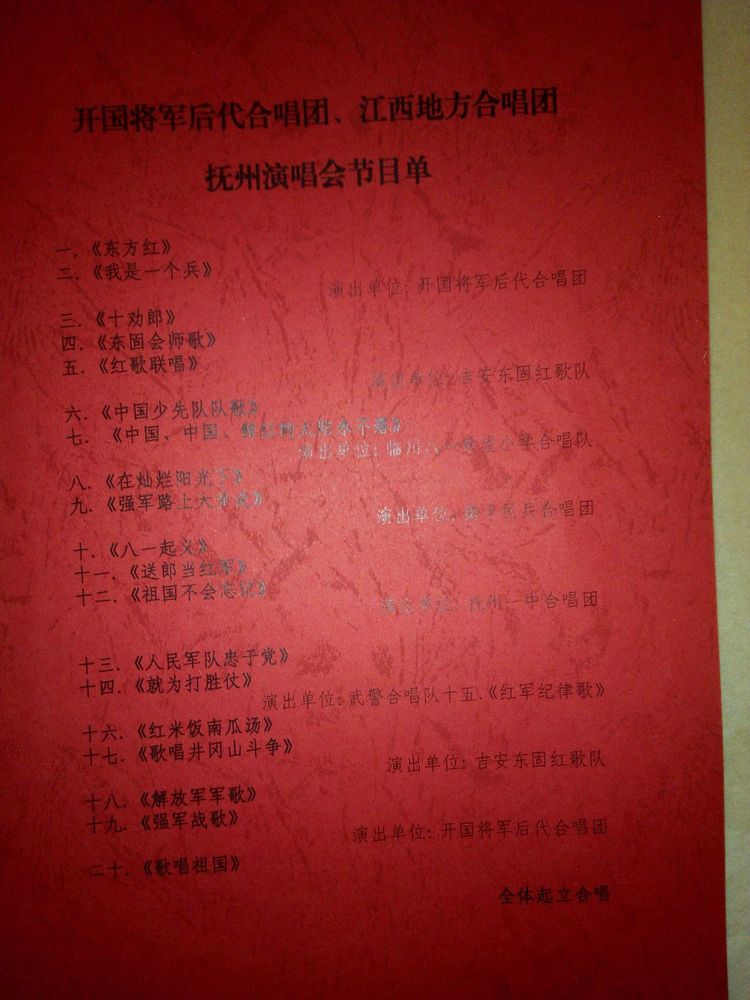 开国将军后代合唱团、江西地方合唱团
抚州演唱会节目单
一.《东方红》
二.《我是一个兵》
演出单位:开国将军后代合唱团
三.《十劝郎》
四.《东固会师歌》
五.《红歌联唱》
演出单位:吉安东固红歌队
六.《中国少先队队歌》
七. 《中国、中国、鲜红的太阳永不落》
演出单位:临川八一希望小学合唱队
八.《在灿烂阳光下》
九.《强军路上大步走》
演出单位:民兵合唱团
十.《八一起义》
十一.《送郎当红军》
十二.《祖国不会忘记》
演出单位:抚州一中合唱团
十三.《人民军队忠于党》
十四.《就为打胜仗》
演出单位:武警合唱队十五.《红军纪律歌》
十六.《红米饭南瓜汤》
十七.《歌唱井冈山斗争》
演出单位:吉安东固红歌队
十八.《解放军军歌》
十九.《强军战歌》
演出单位:开国将军后代合唱团
二十.《歌唱祖国》
全体起立合唱